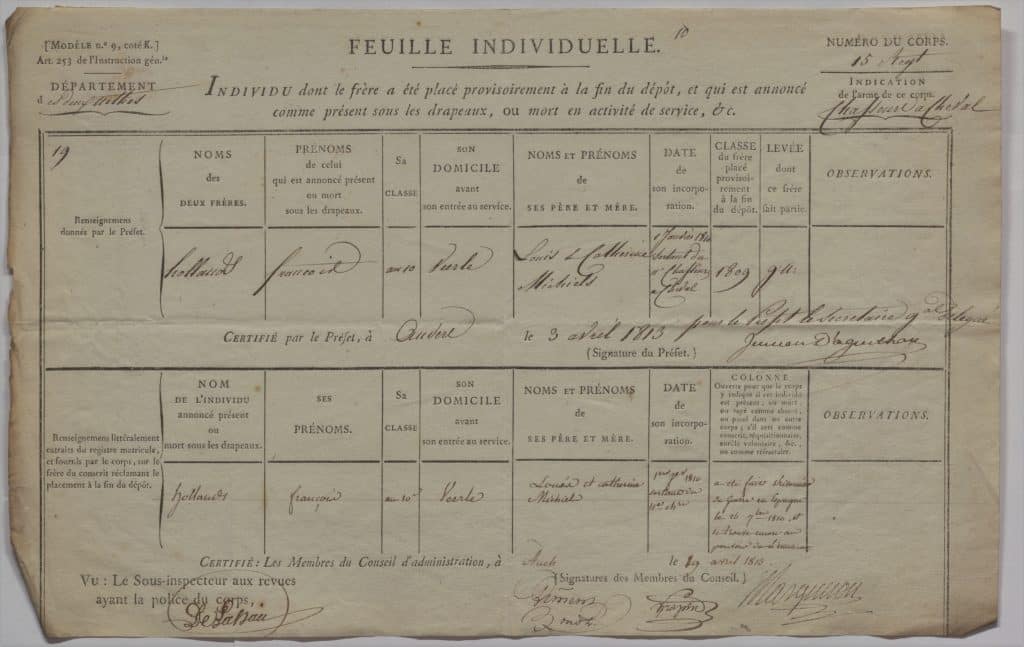 [MODÈLE n.º 9, coté K.]
Art. 253 de l'Instruction gén.le
DÉPARTEMENT
des deux Nèthes
FEUILLE INDIVIDUELLE.
10
NUMÉRO DU CORPS.
15 Regt
INDICATION
de l'arme de ce corps.
Chasseurs à Cheval
INDIVIDU dont le frère a été placé provisoirement à la fin du dépôt, et qui est annoncé
comme présent sous les drapeaux, ou mort en activité de service, &c.
19
Renseignemens
donnés par le Préfet.
NOMS
des
DEUX FRÈRES.
PRÉNOMS
de celui
qui est annoncé présent
ou mort
sous les drapeaux.
Sa
CLASSE
SON
DOMICILE
avant
son entrée au service.
NOMS ET PRÉNOMS
de
SES PÈRE ET MÈRE.
DATE
de
son incorpo-
ration.
CLASSE
du frère
placé
provisoi-
rement
à la fin
du dépôt.
LEVÉE
dont
ce frère
fait partie.
OBSERVATIONS.
hollands
françois
an 10
Veerle
Louis & Catherine
Michiels
1er Janvier 1810
sortant du
Chasseurs
à Cheval
1809
CERTIFIÉ par le Préfet, à Anvers le 3 avril 1813 pour le Préfet le secrétaire gal délégué
(Signature du Préfet.)
Renseignemens littéralement
extraits du registre matricule,
et fournis par le corps, sur le
frère du conscrit réclamant le
placement à la fin du dépôt.
NOM
DE L'INDIVIDU
annoncé présent
ou
mort sous les drapeaux.
SES
PRÉNOMS.
Sa
CLASSE
SON
DOMICILE
avant
son entrée au service.
NOMS ET PRÉNOMS
de
SES PÈRE ET MÈRE.
DATE
de
son incorpo-
ration.
COLONNE
Ouverte pour que le corps
y indique si cet individu
est présent, ou mort,
ou rayé comme absent,
ou passé dans un autre
corps; s'il sert comme
conscrit, réquisitionnaire,
enrôlé volontaire, &c.,
ou comme réfractaire.
OBSERVATIONS.
hollands
françois
an 10
Veerle
Louis et catherine
Michiel
1810
sortant du
a été fait prisonnier
de Guerre en Espagne
le 26 7bre 1810, et
se trouve encore au
pouvoir de l'ennemi
CERTIFIÉ: Les Membres du Conseil d'administration, à Auch le 29 avril 1813.
(Signatures des Membres du Conseil.)
VU: Le Sous-inspecteur aux revues
ayant la police du corps,